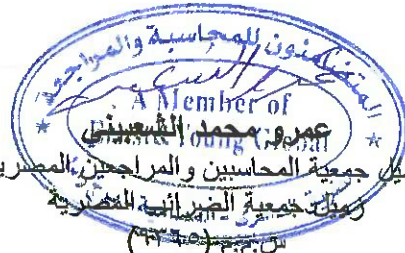 المتضامنون للمحاسبة والمراجعة
A Member of
Ernst & Young Global
عمرو محمد الشعبيني
زميل جمعية المحاسبين والمراجعين المصرية
زميل جمعية الضرائب المصرية